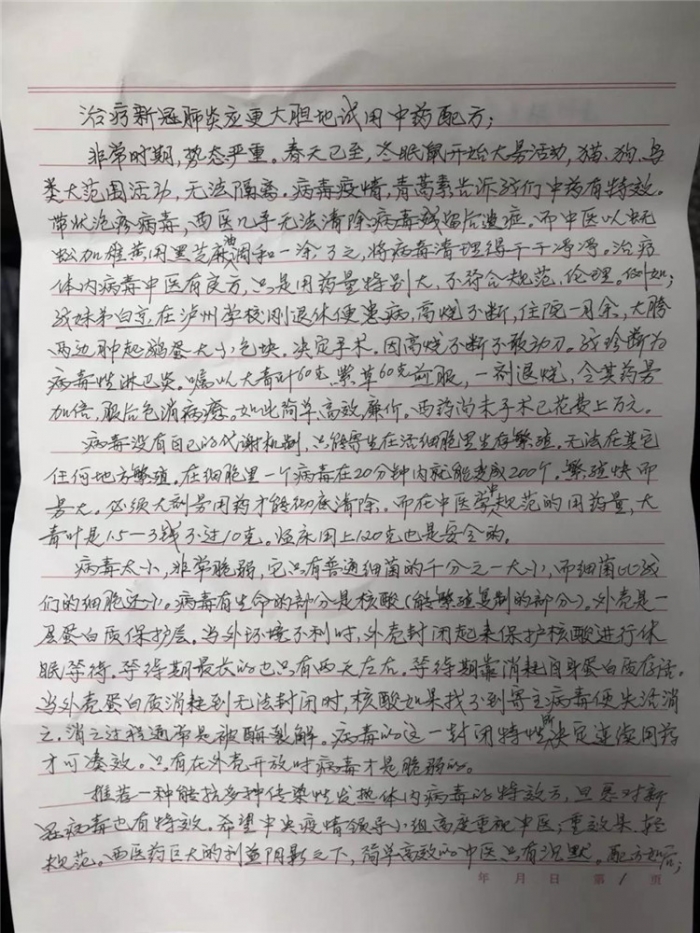 治疗新冠肺炎应更大胆地试用中药配方;
非常时期,势态严重。春天已至,冬眠鼠开始大量活动,猫、狗、鸟
类大范围活动,无法隔离。病毒疫情,青蒿素告诉我们中药有特效。
带状泡疹病毒,西医几乎无法清除病毒残留后遗症。而中医以蜈
蚣加雄黄用黑芝麻油调和一涂了之,将病毒清理得干干净净。治疗
体内病毒中医有良方,只是用药量特别大,不符合规范,伦理。例如;
我妹弟白京在泸州学校刚退休便患病,高烧不断,住院一月余,大胯
两边肿起鹅蛋大小包块。决定手术。因高烧不断不敢动刀。我珍断为
病毒性淋巴炎。嘱以大青叶60克、紫草60克煎服,一剂退烧,令其药量
加倍,服后包消病瘳。如此简单、高效、廉价。西药尚未手术已花费上万元。
病毒没有自己的代谢机制,只能寄生在活细胞里生存繁殖。无法在其它
任何地方繁殖。在细胞里一个病毒在20分钟内就能变成200个。繁殖快而
量大。必须大剂量用药才能彻底清除。而在中医学规范的用药量,大
青叶是1.5—3钱不过10克。临床用上120克也是安全的。
病毒太小,非常脆弱,它只有普通细菌的千分之一大小,而细菌比我
们的细胞还小。病毒有生命的部分是核酸(能繁殖复制的部分)。外壳是一
层蛋白质保护层。当外环境不利时,外壳封闭起来保护核酸进行休
眠、等待。等待期最长的也只有两天左右。等待期靠消耗自身蛋白质存活。
当外壳蛋白质消耗到无法封闭时,核酸如果找不到寄主病毒便失活消
亡,消亡过程通常是被酶裂解。病毒的这一封闭特性决定连续用药
才可凑效。只有在外壳开放时病毒才是脆弱的。
推荐一种能抗多种传染性发热体内病毒的特效方,旦愿对新
冠病毒也有特效。希望中央疫情领导小组高度重视中医;重效果、轻
规范。西医药巨大的利益阴影之下,简单高效的中医只有沉默。配方如后;
年 月 日 第 1 页